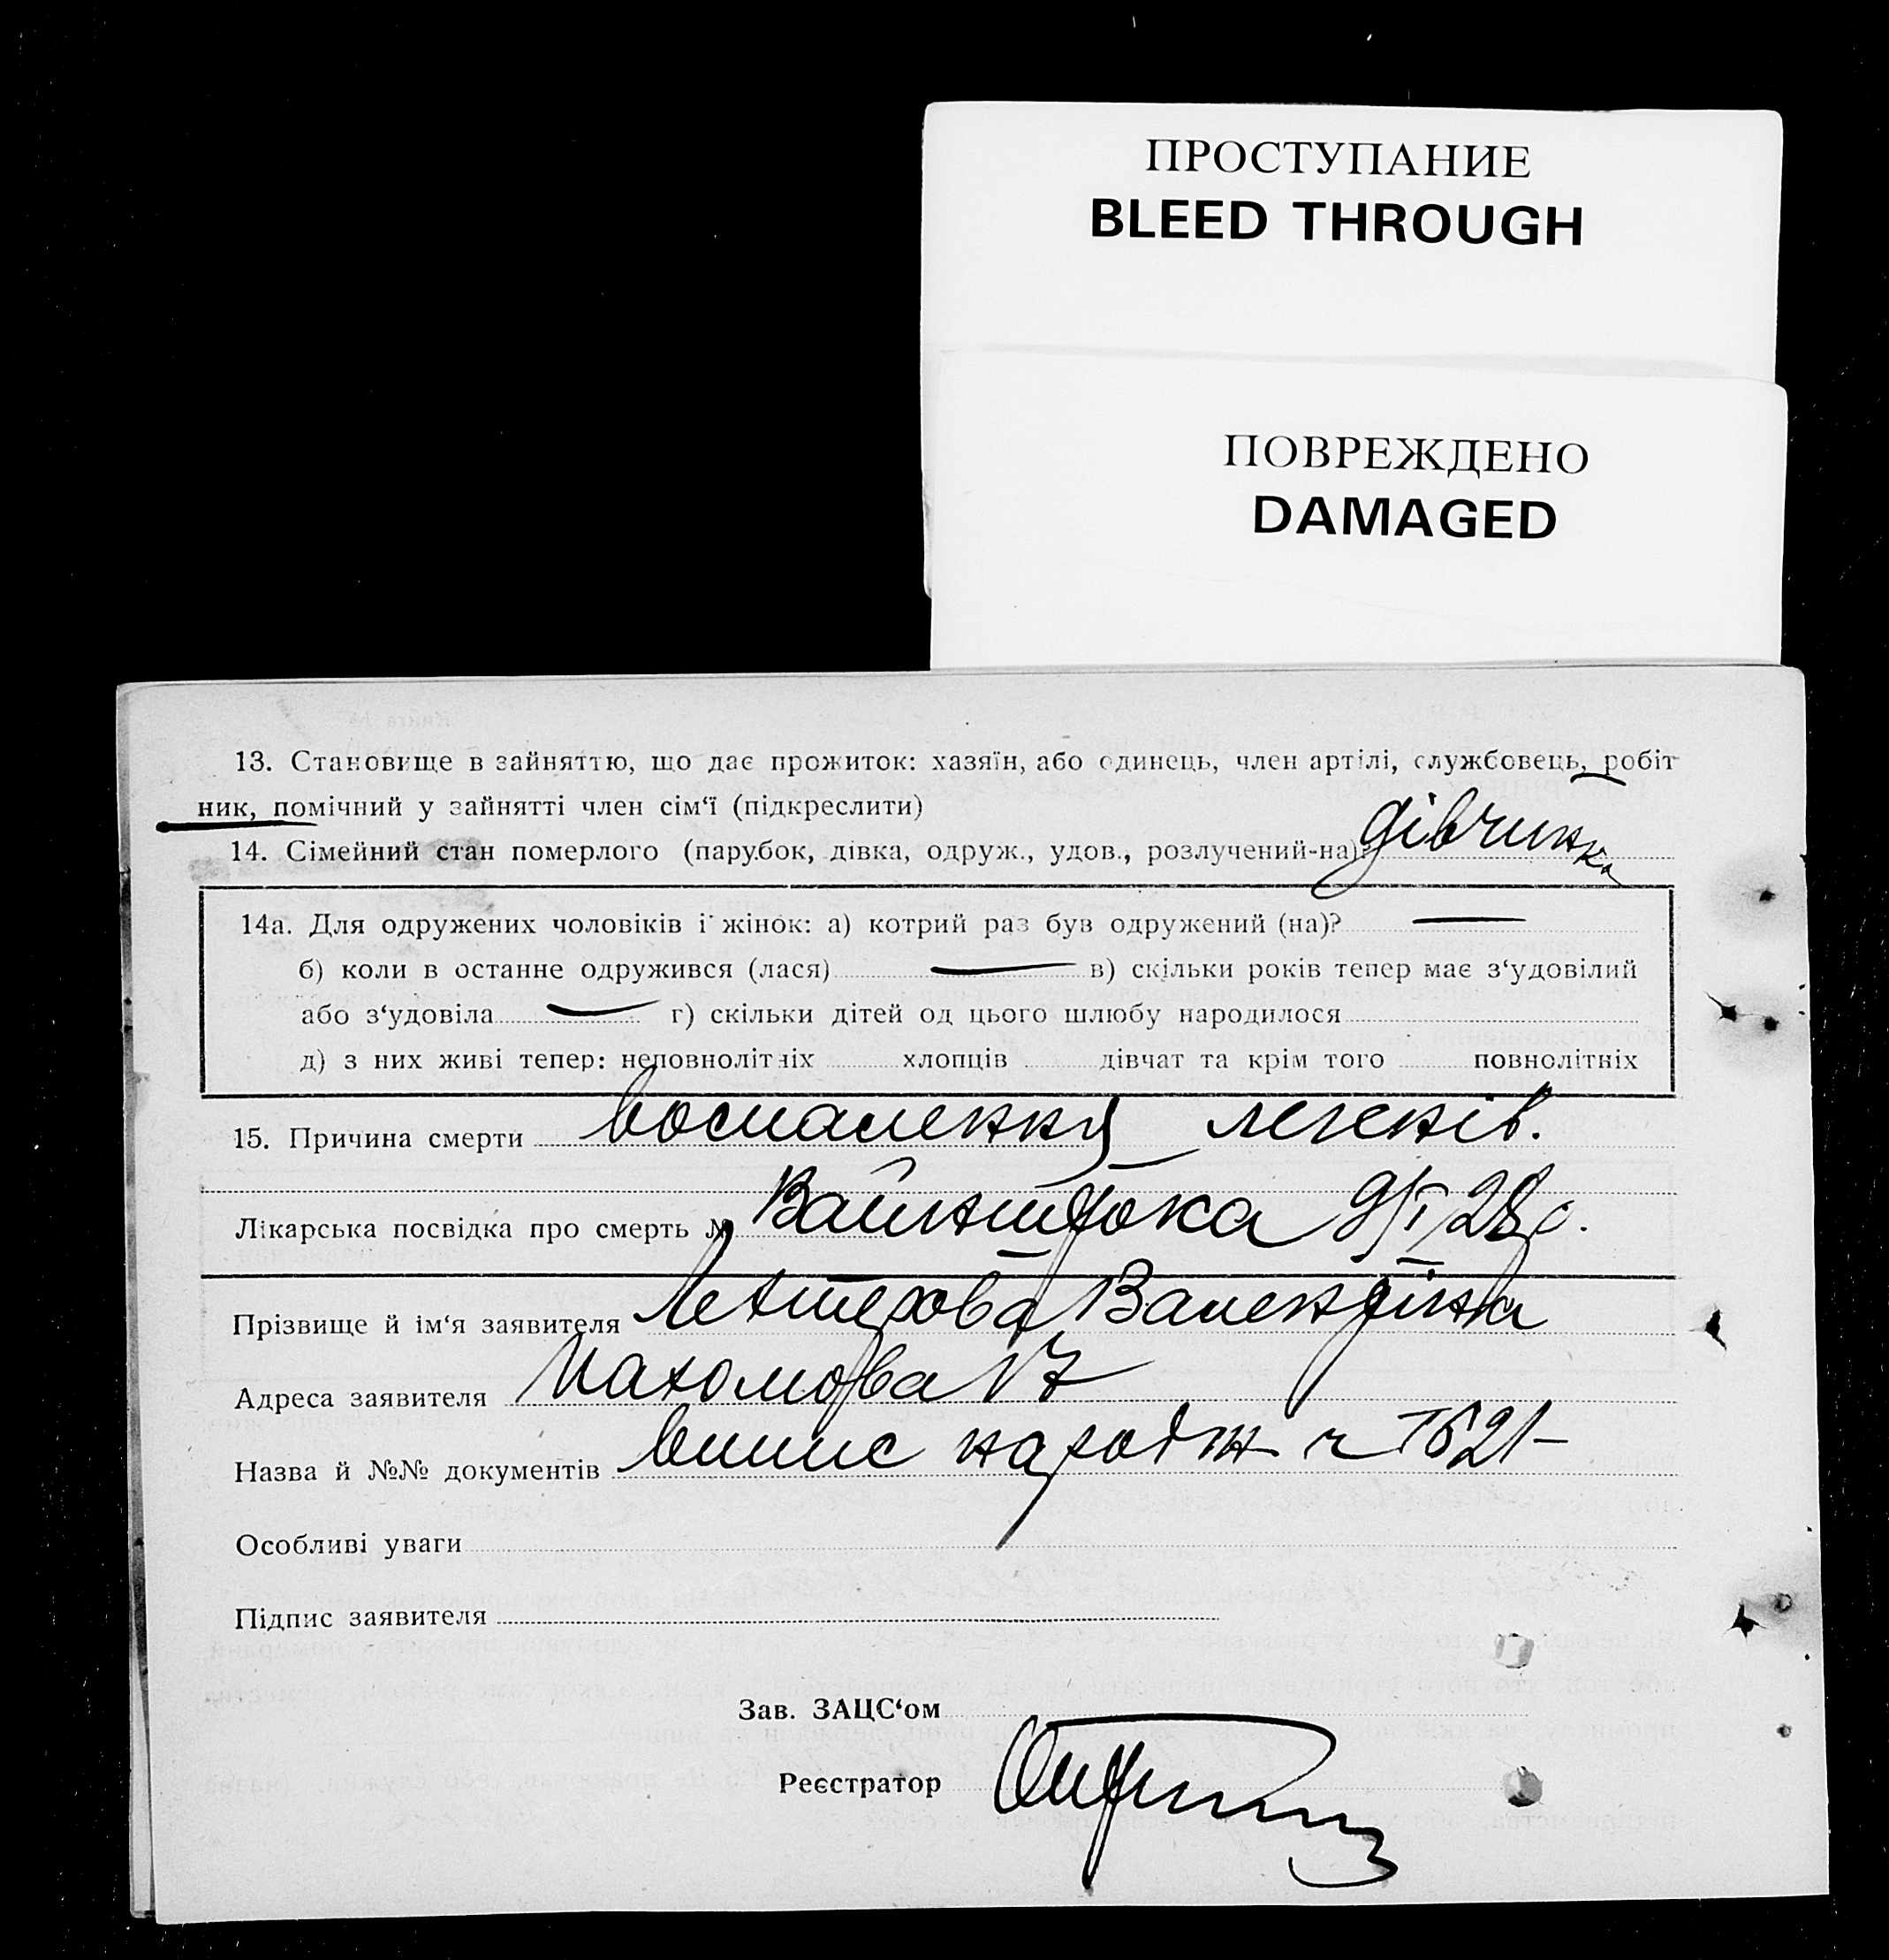 ПРОСТУПАНИЕ
BLEED THROUGH
ПОВРЕЖДЕНО
DAMAGED
13. Становище в зайняттю, що дає прожиток: хазяїн, або одинець, член артілі, службовець, робіт
ник, помічний у зайнятті член сім‘ї (підкреслити)
14. Сімейний стан померлого (парубок, дівка, одруж., удов., розлучений-на): дівчинка
14а. Для одружених чоловіків і жінок: а) котрий раз був одружений (на)? —
б) коли в останне одружився (лася) — в) скільки років тепер має з‘удовілий
або з‘удовіла — г) скільки дітей од цього шлюбу народилося
д) з них живі тепер: неповнолітніх хлопців дівчат та крім того повнолітніх
15. Причина смерти воспалення легенів.
Лікарська посвідка про смерть № 9/I 28 р.
Прізвище й ім‘я заявителя Валендіна
Адреса заявителя 17
Назва й №№ документів випис народж
Особливі уваги
Підпис заявителя
Зав. ЗАЦС‘ом
Реєстратор